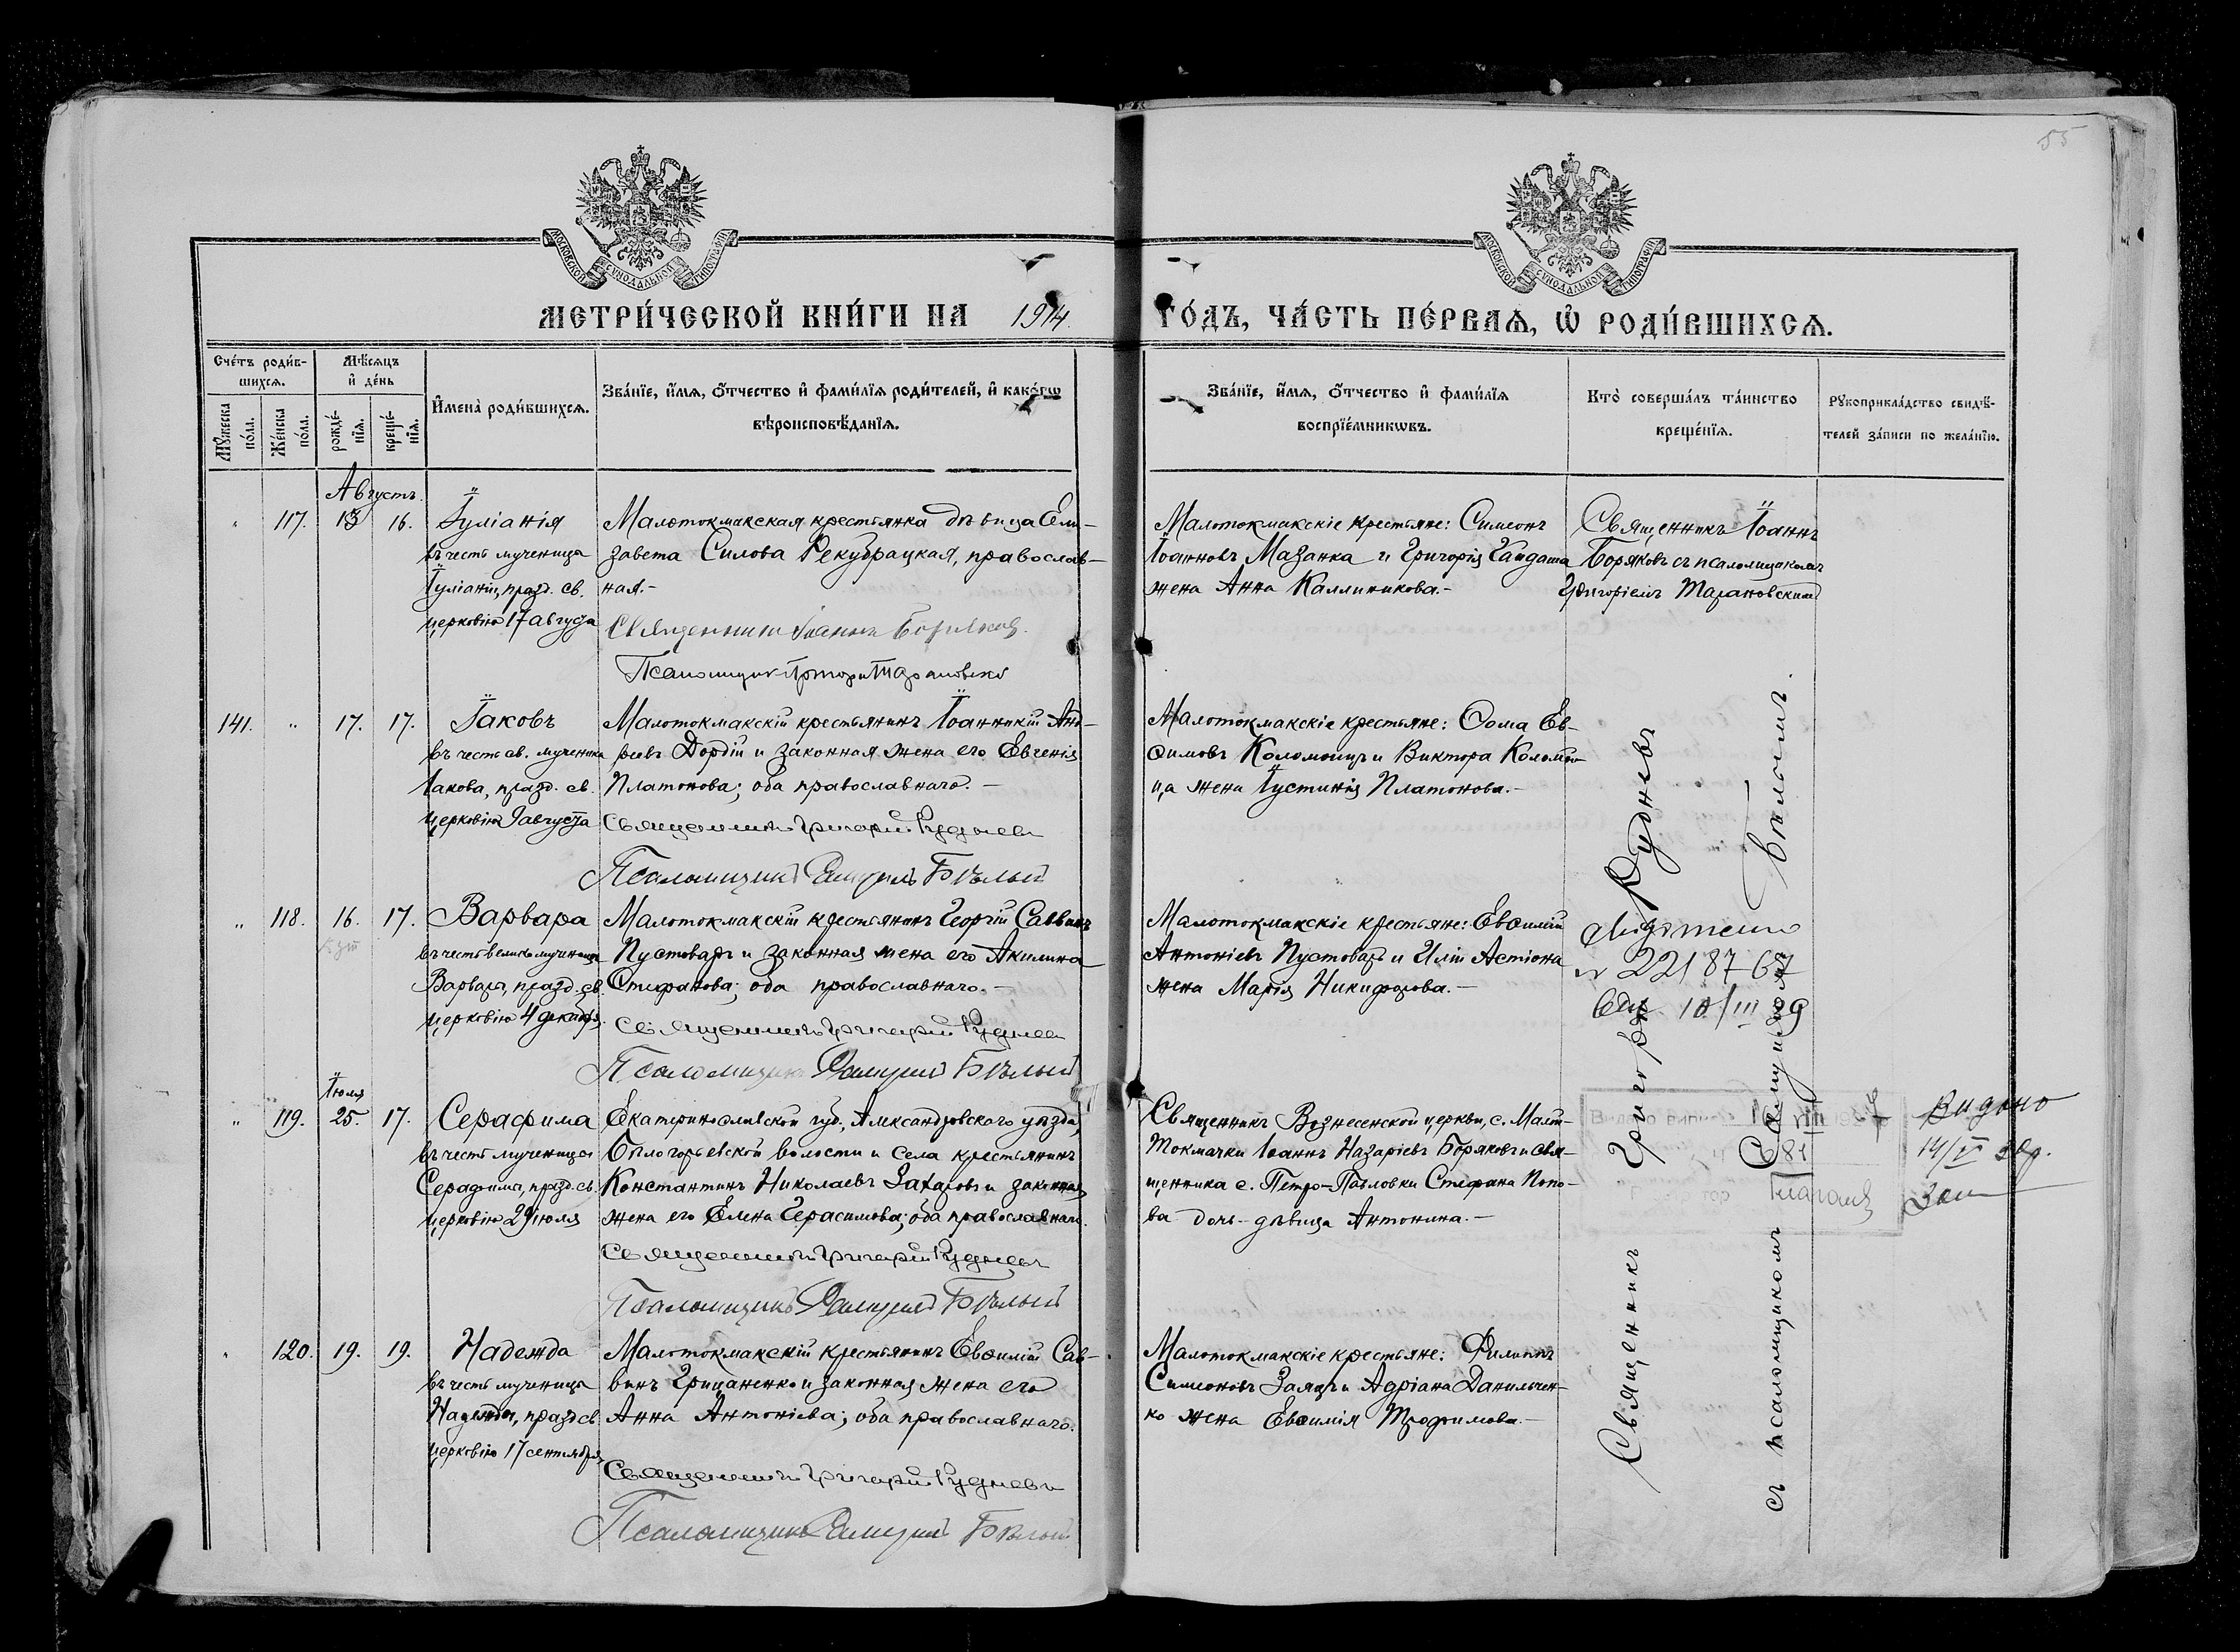 55
МОСКОВСКОЙ СѴНОДАЛЬНОЙ ТИПОГРАФІИ
МОСКОВСКОЙ СѴНОДАЛЬНОЙ ТИПОГРАФІИ
МЕТРИ́ЧЕСКОЙ КНИ́ГИ НА 1914 ГО́ДЪ, ЧА́СТЬ ПЕ́РВАѦ, Ѡ҆ РОДИ́ВШИХСѦ.
Сче́тъ роди́в-
шихсѧ.
Мꙋ́жеска
по́ла.
Же́нска
по́ла.
Мѣ́сѧцъ
и҆ де́нь
рожде́-
нїѧ.
креще́-
нїѧ.
И҆мена̀ роди́вшихсѧ.
Зва́нїе, и҆́мѧ, ѻ҆́тчество и҆ фами́лїѧ роди́телей, и҆ како́гѡ
вѣроисповѣ́данїѧ.
Зва́нїе, и҆́мѧ, ѻ҆́тчество и҆ фами́лїѧ
воспрїе́мникѡвъ.
Кто̀ соверша́лъ та́инство
креще́нїѧ.
Рꙋкоприкла́дство свидѣ́-
телей за́писи по жела́нїю.
Августъ.
" 117. 13 16.
Іуліанія
въ честь мученицы
Іуліаніи, празд. св.
церковію 17 августа
Малотокмакская крестьянка дѣвица Ели-
завета Силова Рекубрацкая, православ-
ная.-
Священникъ Іоаннъ Боряковъ.
Псаломщикъ Григорій Тарановскій
Малотокмакскіе крестьяне: Симеонъ
Іоанновъ Мазанка и Григорія Гайдаша
жена Анна Каллиникова.-
Священникъ Іоаннъ
Боряковъ съ псаломщикомъ
Григоріемъ Тарановскимъ
141. " 17. 17.
Іаковъ
въ честь св. мученика
Іакова, празд. св.
церковію 9 августа
Малотокмакскій крестьянинъ Іоанникій Анд-
реевъ Дордій и законная жена его Евгенія
Платонова; оба православнаго.-
Священникъ Григорій Рудневъ
Псаломщикъ Самуилъ Бѣлый
Малотокмакскіе крестьяне: Ѳома Ев-
ѳимовъ Коломоицъ и Виктора Коломой-
ца жена Іустинія Платонова.-
" 118. 16. 17.
Варвара
въ честь великомученицы
Варвары, празд. св.
церковію 4 декабря.
Малотокмакскій крестьянинъ Георгій Саввинъ
Пустоваръ и законная жена его Акилина
Стефанова; оба православнаго.-
Священникъ Григорій Рудневъ
Псаломщикъ Самуилъ Бѣлый
Малотокмакскіе крестьяне: Евѳимій
Антоніевъ Пустоваръ и Иліи Астіона
жена Марія Никифорова.-
№ 2218767
10/III 39
Іюля
" 119. 25. 17.
Серафима
въ честь мученицы
Серафимы, празд. св.
церковію 29 іюля
Екатеринославской губ., Александровскаго уѣзда,
Бѣлогорьевской волости и села крестьянинъ
Константинъ Николаевъ Захаровъ и законная
жена его Елена Герасимова; оба православнаго.
Священникъ Григорій Рудневъ
Псаломщикъ Самуилъ Бѣлый
Священникъ Вознесенской церкви, с. Малой-
Токмачки Іоаннъ Назаріевъ Боряковъ и свя-
щенника с. Петро-Павловки Стефана Попо-
ва дочь-дѣвица Антонина.-
Видано
14/V
" 120. 19. 19.
Надежда
въ честь мученицы
Надежды, празд св.
церковію 17 сентября,
Малотокмакскій крестьянинъ Евѳимій Сав-
винъ Грицаненко и законная жена его
Анна Антоніева; оба православнаго.
Священникъ Григорій Рудневъ
Псаломщикъ Самуилъ Бѣлый
Малотокмакскіе крестьяне: Филиппъ
Симеоновъ Заяцъ и Адріана Данильчен-
ко жена Евѳимія Трофимова.-
Священникъ Григорій Рудневъ
съ псаломщикомъ Самуиломъ Бѣлымъ.